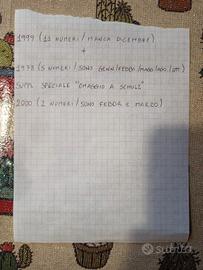 1999 (11 NUMERI / MANCA DICEMBRE)
+
1978 (5 NUMERI / SONO GENN/FEBBR/MAGG/AGO/OTT)
SUPPL SPECIALE "OMAGGIO A SCHULZ"
2000 (2 NUMERI / SONO FEBBR E MARZO)
subito